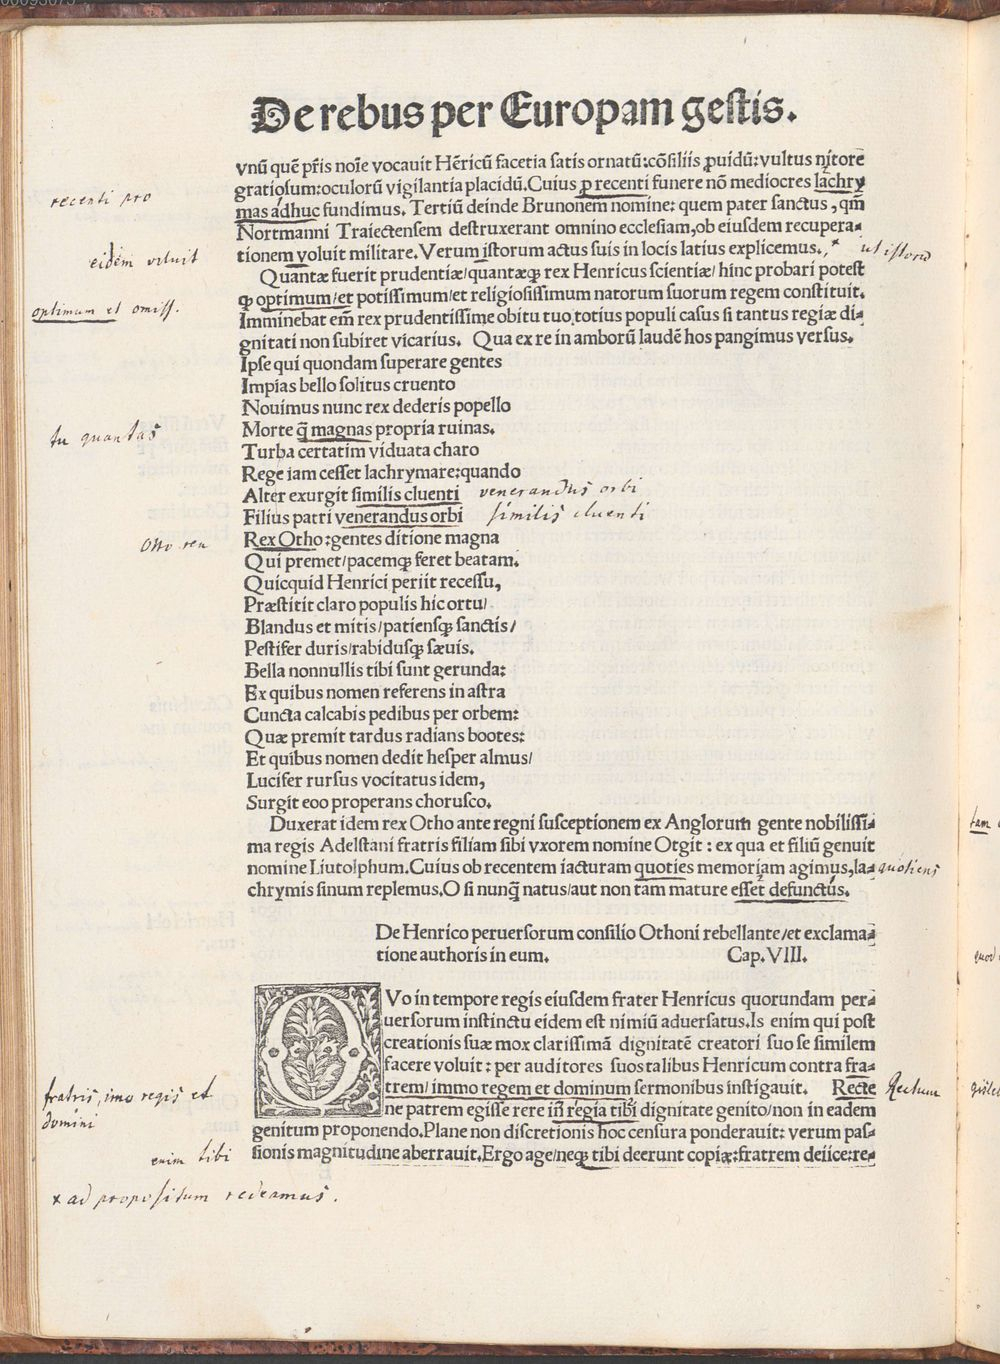 00093075
De rebus per Europam gestis.
vnū quē p̄ris noīe vocauit Hēricū facetia satis ornatū:cōsiliis ꝓuidū:vultus nitore
gratiosum:oculorū vigilantia placidū.Cuius ꝓ recenti funere nō mediocres lachry
recenti pro
mas adhuc fundimus. Tertiū deinde Brunonem nomine: quem pater sanctus, qm̄
Nortmanni Traiectensem destruxerant omnino ecclesiam,ob eiusdem recupera-
tionem voluit militare. Verum istorum actus suis in locis latius explicemus.
eidem voluit
ut istorū
Quantæ fuerit prudentiæ/quantæqꝫ rex Henricus scientiæ/ hinc probari potest
ꝙ optimum/et potissimum/et religiosissimum natorum suorum regem constituit.
optimum et omiss.
Imminebat em̄ rex prudentissime obitu tuo.totius populi casus si tantus regiæ di-
gnitati non subiret vicarius. Qua ex re in amborū laudē hos pangimus versus.
Ipse qui quondam superare gentes
Impias bello solitus cruento
Nouimus nunc rex dederis popello
Morte q̄ magnas propria ruinas.
tu quantas
Turba certatim viduata charo
Rege iam cesset lachrymare:quando
Alter exurgit similis cluenti venerandus orbi
Filius patri venerandus orbi similis cluenti
Rex Otho:gentes ditione magna
Otto rex
Qui premet/pacemqꝫ feret beatam:
Quicquid Henrici periit recessu,
Præstitit claro populis hic ortu/
Blandus et mitis/patiensqꝫ sanctis/
Pestifer duris/rabidusqꝫ sæuis.
Bella nonnullis tibi sunt gerunda:
Ex quibus nomen referens in astra
Cuncta calcabis pedibus per orbem:
Quæ premit tardus radians bootes:
Et quibus nomen dedit hesper almus/
Lucifer rursus vocitatus idem,
Surgit eoo properans chorusco.
Duxerat idem rex Otho ante regni susceptionem ex Anglorum gente nobilissi-
ma regis Adelstani fratris filiam sibi vxorem nomine Otgit : ex qua et filiū genuit
nomine Liutolphum.Cuius ob recentem iacturam quoties memoriam agimus,la-
quotiens
chrymis sinum replemus.O si nunq̄ natus/aut non tam mature esset defunctus.
De Henrico peruersorum consilio Othoni rebellante/et exclama-
tione authoris in eum. Cap.VIII.
QVo in tempore regis eiusdem frater Henricus quorundam per-
uersorum instinctu eidem est nimiū aduersatus.Is enim qui post
creationis suæ mox clarissimā dignitatē creatori suo se similem
facere voluit : per auditores suos talibus Henricum contra fra-
trem/immo regem et dominum sermonibus instigauit. Recte
fratris, imo regis et
domini
Rectum
ne patrem egisse rere in̄ regia tibi dignitate genito/non in eadem
genitum proponendo.Plane non discretionis hoc censura ponderauit: verum pas-
sionis magnitudine aberrauit.Ergo age/neqꝫ tibi deerunt copiæ:fratrem deiice:re-
enim tibi
x ad propositum redeamus.
tam
quod